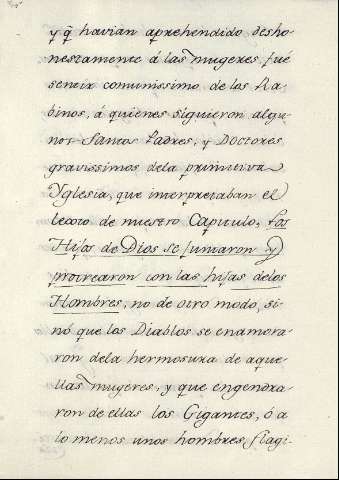 y q̃ havian aprehendido desho-
nestamente á las mugeres, fué
sentir comunissimo de los Ra-
binos, á quienes siguieron algu-
nos Santos Padres, y Doctores
gravissimos dela primitiva
Yglesia, que interpretaban el
texto de nuestro Capitulo, Los
Hijos de Dios se juntaron y
procrearon con las hijas delos
Hombres, no de otro modo, si-
nó que los Diablos se enamora-
ron dela hermosura de aque-
llas mugeres, y que engendra-
ron de ellas los Gigantes, ó a
lo menos unos hombres flagi-